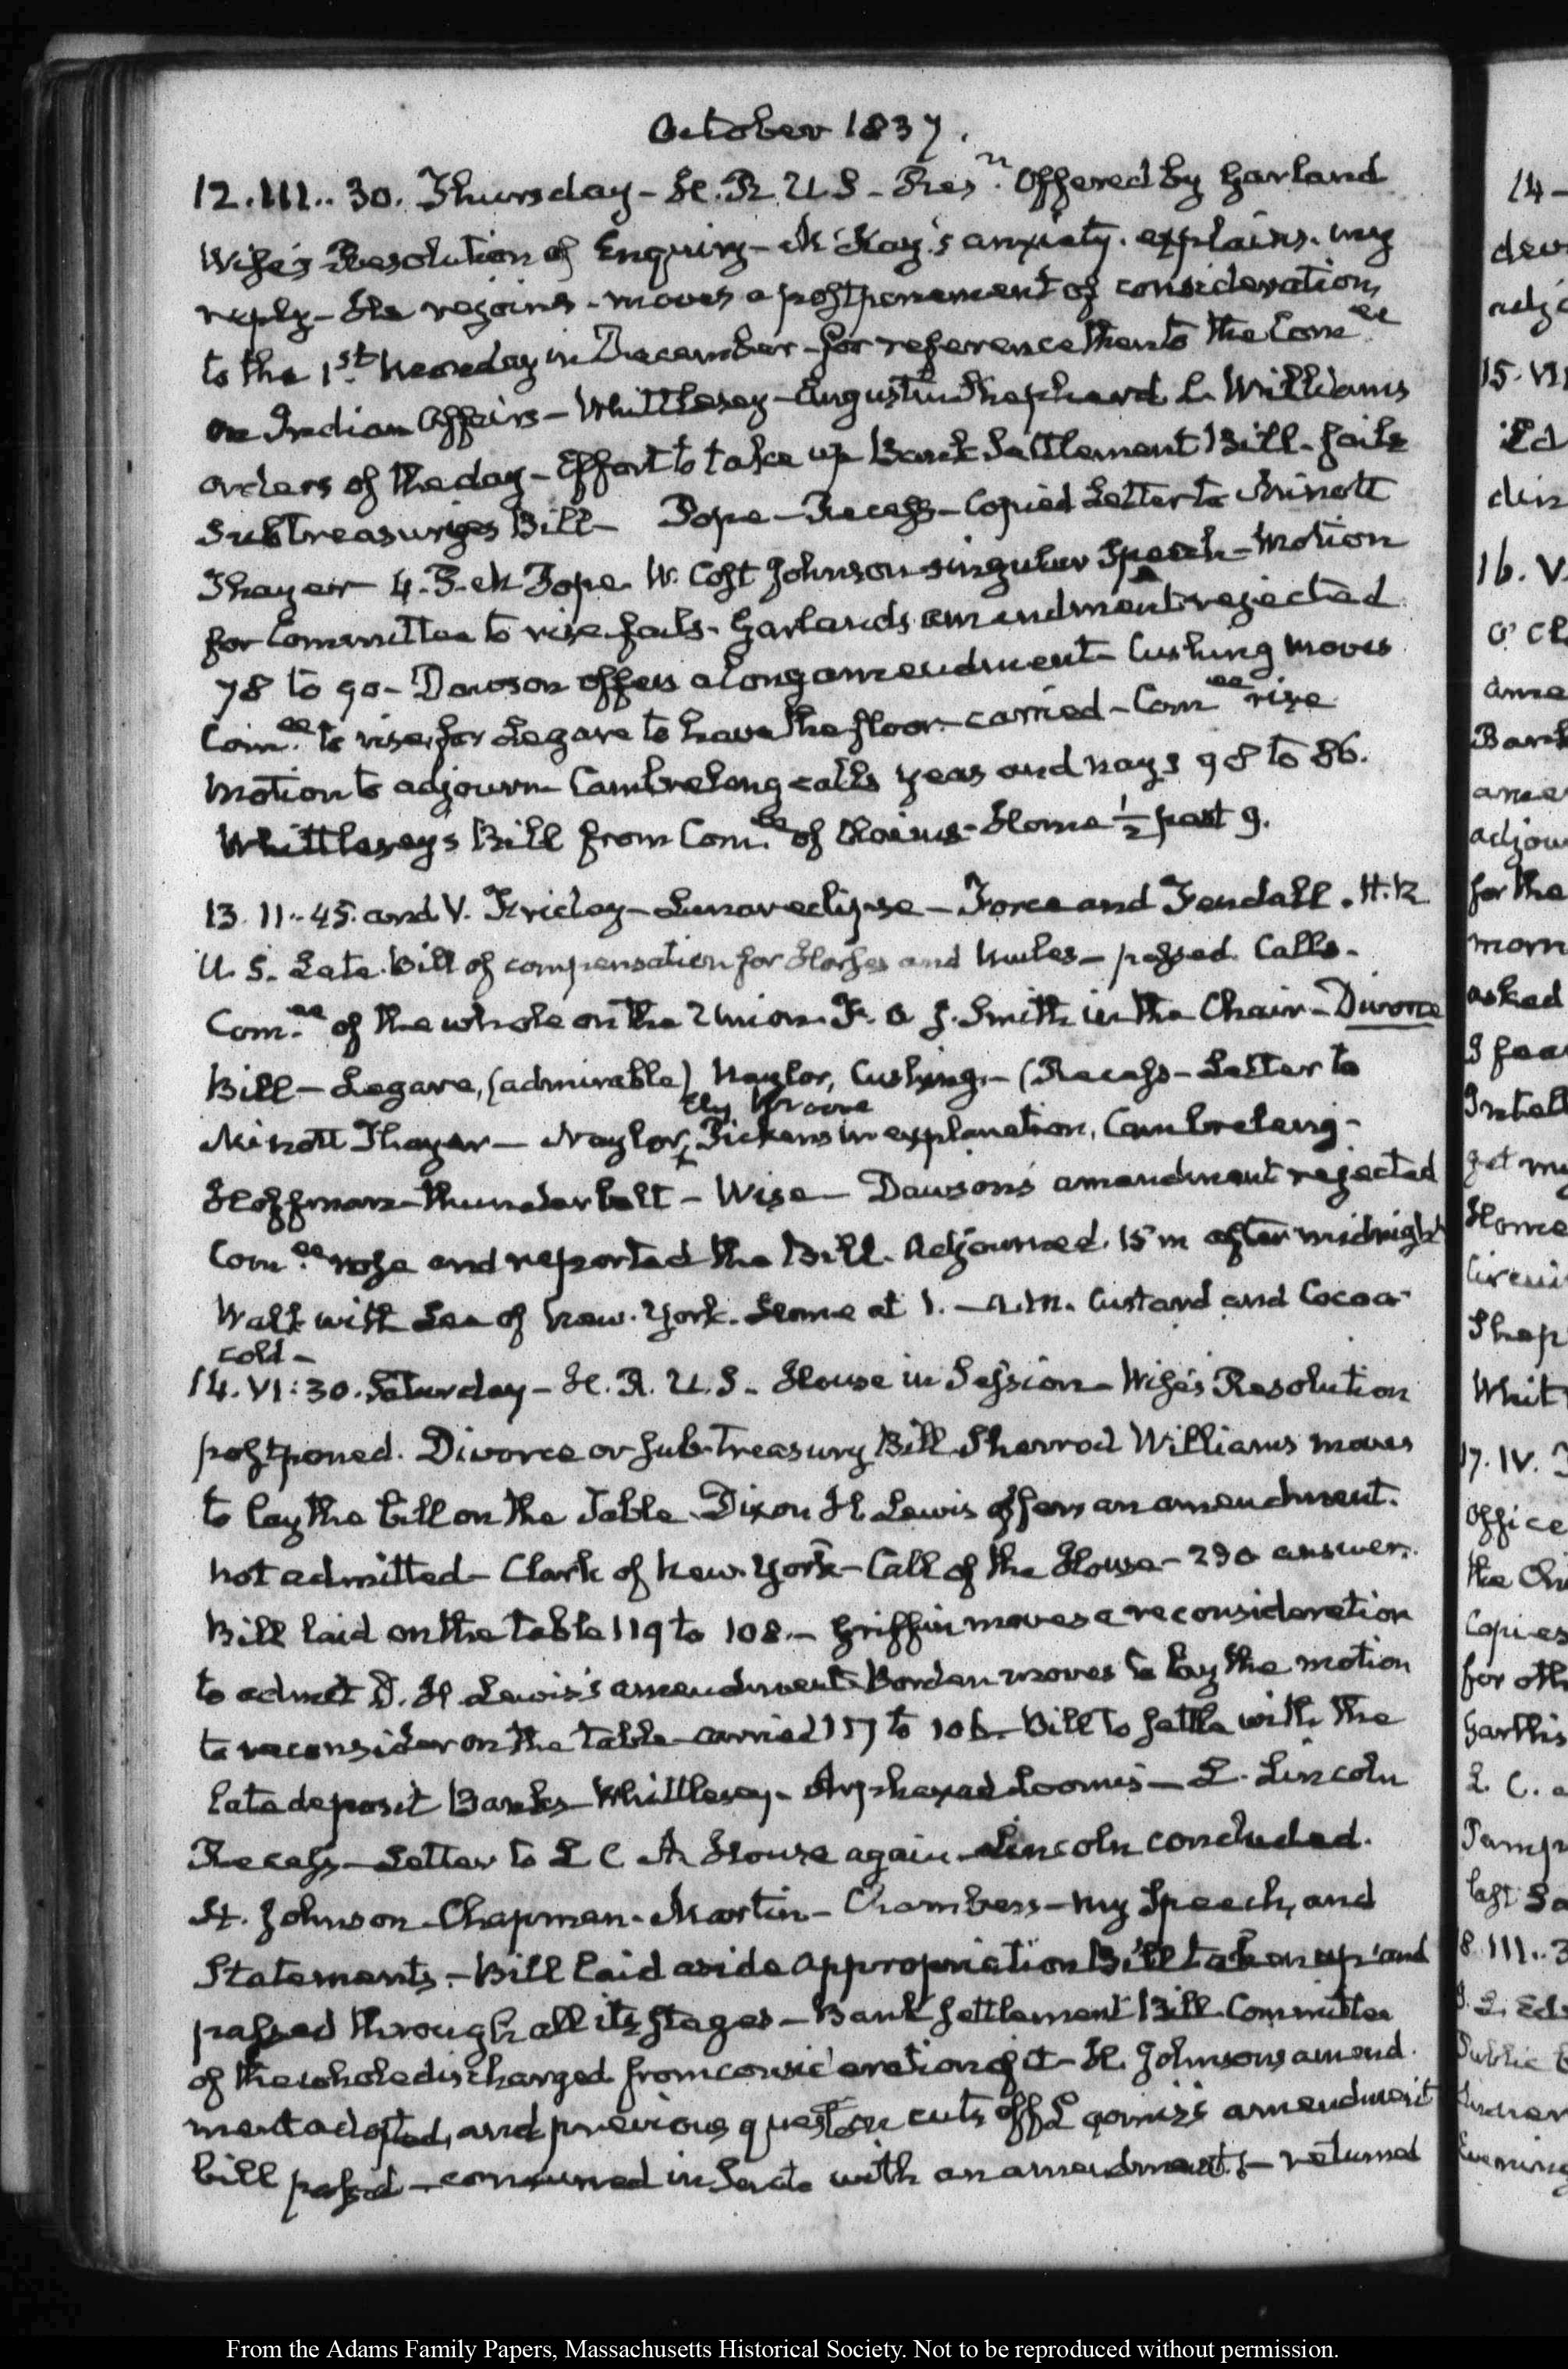 October 1837.
12. III.. 30. Thursday - H. R. U S - Res.n Offered by Garland
Wise's Resolution of Enquiry - McKay's anxiety. explains. my
reply - He rejoins - moves a postponement of consideration,
to the 1st. Monday in December - for reference then to the Comee
on Indian Affairs - Whittlesey - Augustin Shepherd L. Williams
orders of the day - Effort to take up Bank Settlement Bill - fails
Subtreasuries Bill - Pope - Recess - Copied Letter to Minott
Thayer - 4. P. M Pope. W. Cost Johnson singular Speech - Motion
for Committee to rise fails - Garlands amendment rejected
78 to 90 - Dawson offers a long amendment - Cushing moves
Com.ee to rise, for Legare to have the floor - carried - Comee rise
Motion to adjourn Cambreleng calls yeas and nays 98 to 86.
Whittleseys Bill from Com.ee of Claims - Home ½ past 9.
13. II.. 45. and V. Friday - Lunar eclipse - Force and Fendall. H. R
U. S. Late. Bill of compensation for Horses and Mules - passed. Calls -
Com.ee of the whole on the Union. F. O. J. Smith in the Chair - Divorce
Bill - Legare, (admirable) Naylor, Cushing - (Recess - Letter to
Ely Moore
Minott Thayer - Naylor, Pickens in explanation, Cambreleng -
Hoffman - thunderbolt - Wise - Dawson's amendment rejected
Com.ee rose and reported the Bill. Adjourned. 15 m after midnight
Walk with Lee of New-York. Home at 1. - A.M. Custard and Cocoa
cold -
14. VI: 30. Saturday - H. R. U. S. House in Session - Wise's Resolution
postponed. Divorce or Sub-Treasury Bill Sherrod Williams moves
to lay the bill on the Table. Dixon H. Lewis offers an amendment.
not admitted - Clark of New-York - Call of the House - 230 answer.
Bill laid on the table 119 to 108. - Griffin moves a reconsideration
to admit D. H Lewis's amendment Borden moves to lay the motion
to reconsider on the table carried to 106 - Bill to settle with the
late deposit Banks - Whittlesey - Arphaxad Loomis - L. Lincoln
Recess - Letter to L C A. House again - Lincoln concluded.
H. Johnson - Chapman - Martin - Chambers - my Speech, and
Statements. - Bill laid aside Appropriation Bill taken up and
passed through all its stages - Bank Settlement Bill Committee
of the whole discharged from consideration of it - H. Johnsons amend.
ment adopted, and previous question cuts off Loomis's amendment
bill passed - concurred in Senate with an amendment; - returned
14 -
15. VI
16. V.
17. IV.
office
Copies
for oth
for the
asked
From the Adams Family Papers, Massachusetts Historical Society. Not to be reproduced without permission.